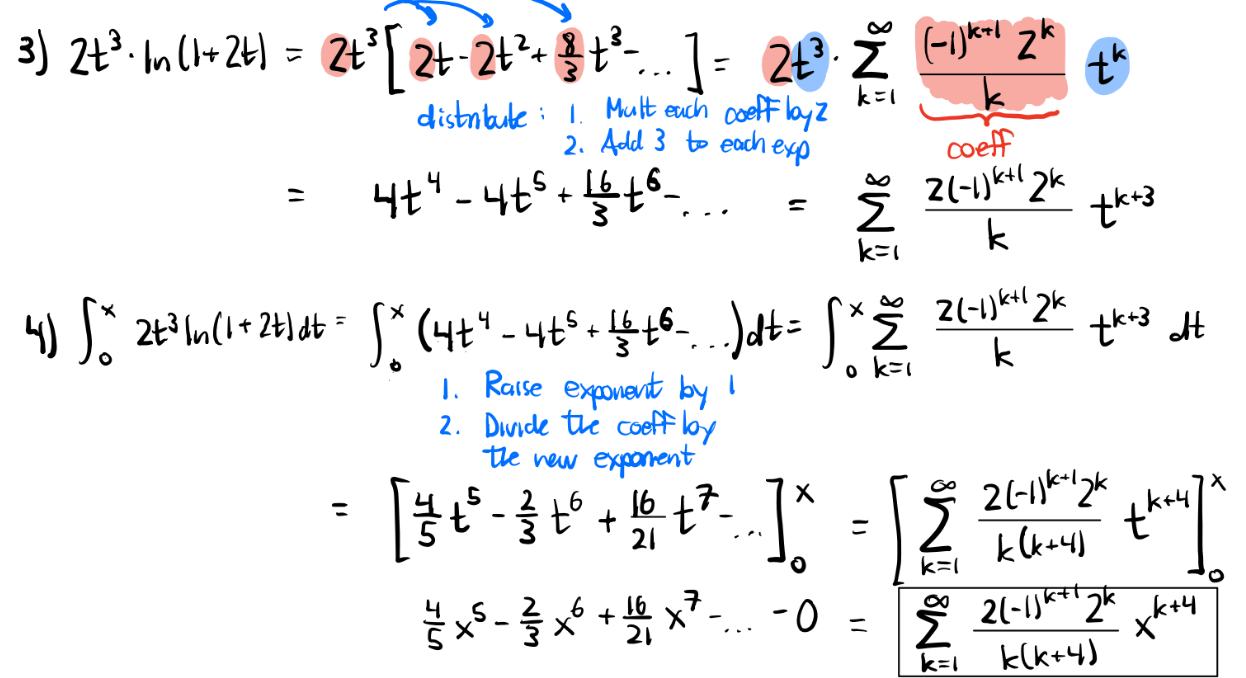 3) 2t³ · ln(1+2t) = 2t³[2t - 2t² + 8/3 t³ - ...] = 2t³ · ∑_{k=1}^{∞} (-1)^{k+1} 2^k / k t^k
distribute: 1. Mult each coeff by 2
2. Add 3 to each exp
coeff
= 4t⁴ - 4t⁵ + 16/3 t⁶ - ... = ∑_{k=1}^{∞} 2(-1)^{k+1} 2^k / k t^{k+3}
4) ∫_0^x 2t³ ln(1+2t) dt = ∫_0^x (4t⁴ - 4t⁵ + 16/3 t⁶ - ...) dt = ∫_0^x ∑_{k=1}^{∞} 2(-1)^{k+1} 2^k / k t^{k+3} dt
1. Raise exponent by 1
2. Divide the coeff by
the new exponent
= [4/5 t⁵ - 2/3 t⁶ + 16/21 t⁷ - ...]_0^x = [∑_{k=1}^{∞} 2(-1)^{k+1} 2^k / k(k+4) t^{k+4}]_0^x
4/5 x⁵ - 2/3 x⁶ + 16/21 x⁷ - ... - 0 = ∑_{k=1}^{∞} 2(-1)^{k+1} 2^k / k(k+4) x^{k+4}